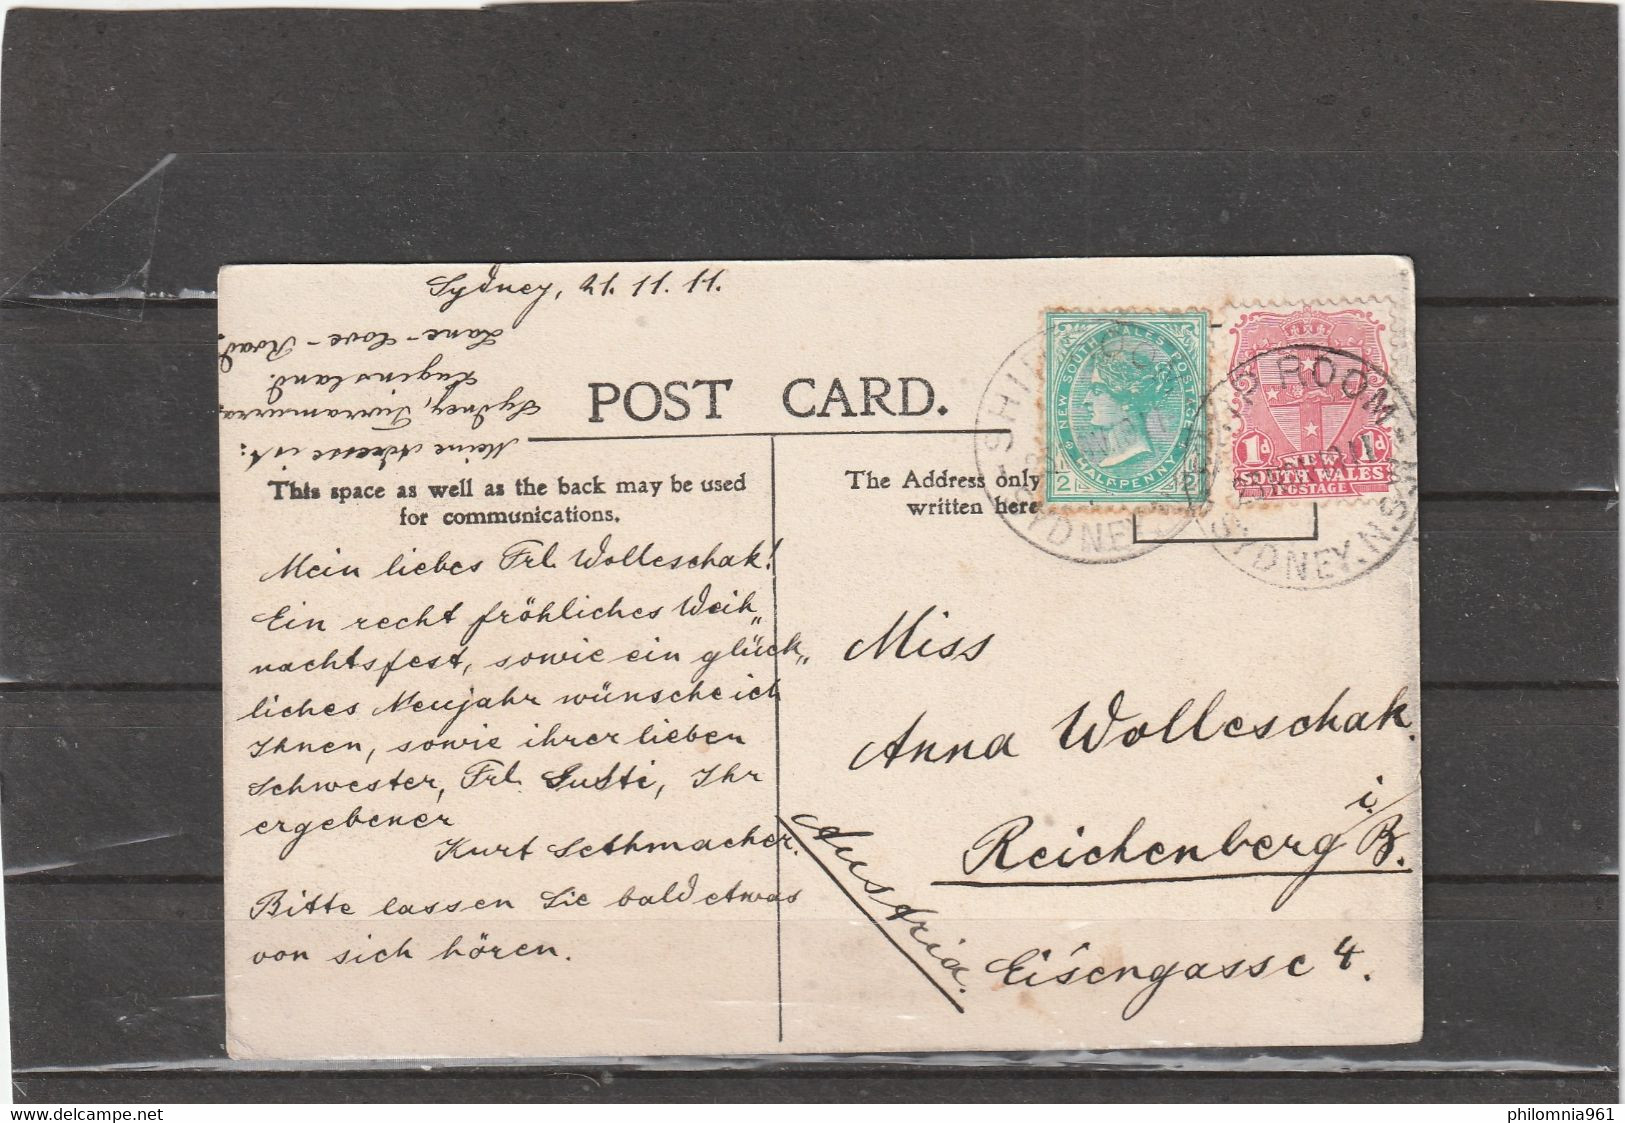 Sydney, 21.11.11.
Meine Adresse ist:
Sydney, Turramurra,
Luginsland.
Lane-Cove-Road.
POST CARD.
This space as well as the back may be used
for communications.
The Address only
written here
NEW SOUTH WALES POSTAGE
HALFPENNY
1/2 1/2
1d 1d
NEW
SOUTH WALES
POSTAGE
SHIP ROOM
SYDNEY.N.S.W
Mein liebes Frl. Wolleschak!
Ein recht fröhliches Weih„
nachtsfest, sowie ein glück„
liches Neujahr wünsche ich
Ihnen, sowie ihrer lieben
Schwester, Frl. Gusti, Ihr
ergebener
Kurt Sethmacher.
Bitte lassen Sie bald etwas
von sich hören.
Miss
Anna Wolleschak.
Reichenberg i/B.
Austria.
Eisengasse 4.
philomnia961